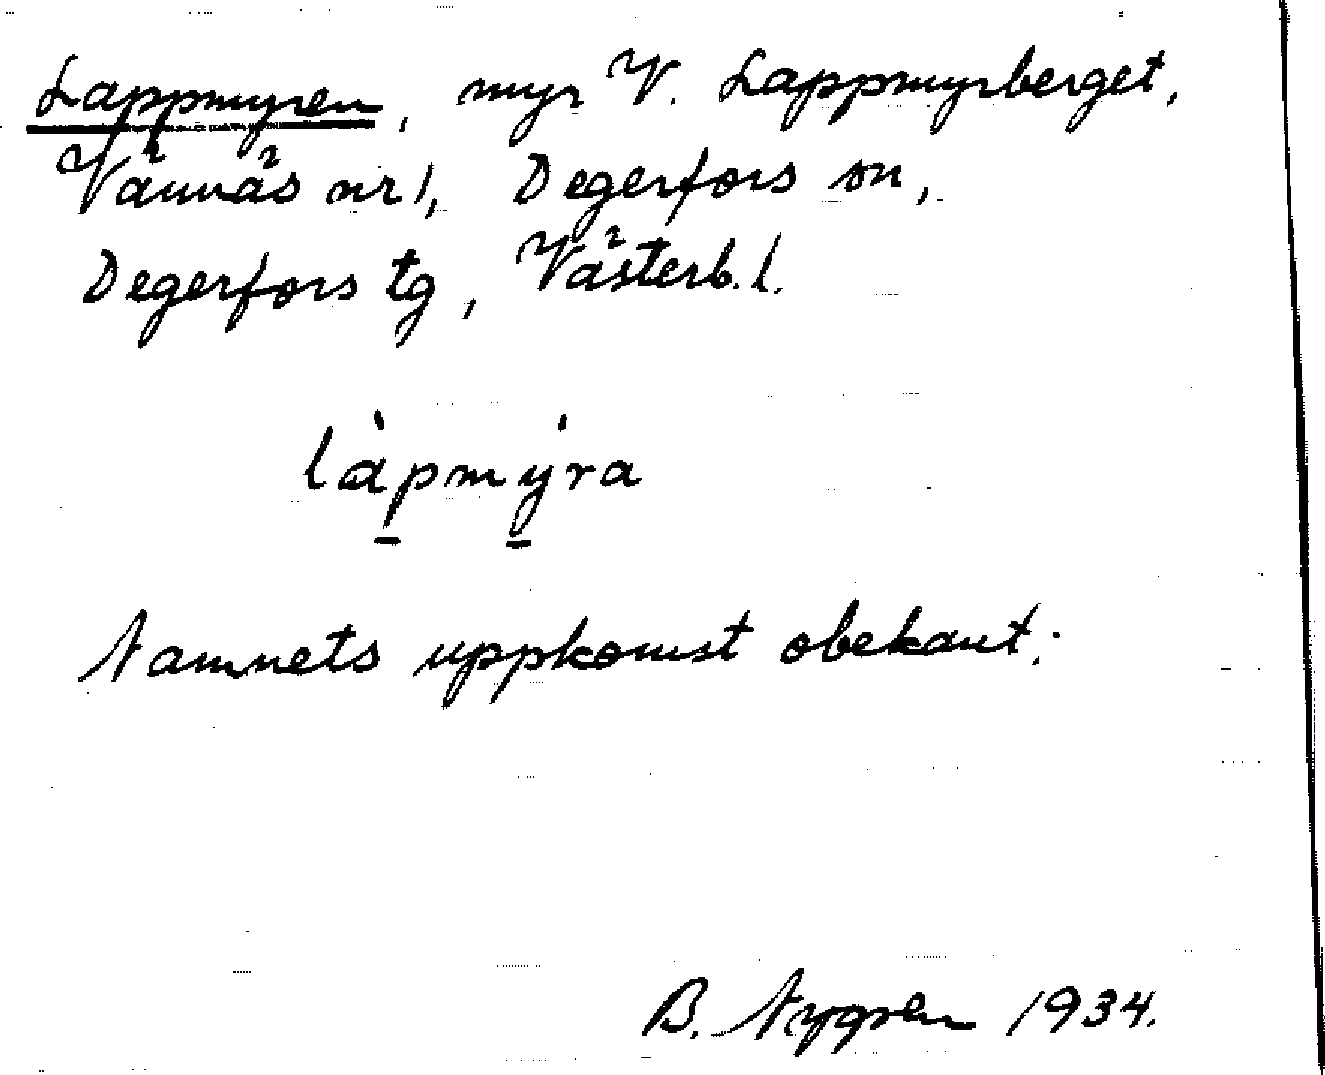 Lappmyren, myr V. Lappmyrberget,
Vännäs nr 1, Degerfors sn,
Degerfors tg, Västerb. l.
làpmýra
Namnets uppkomst obekant.
B. Nygren 1934.